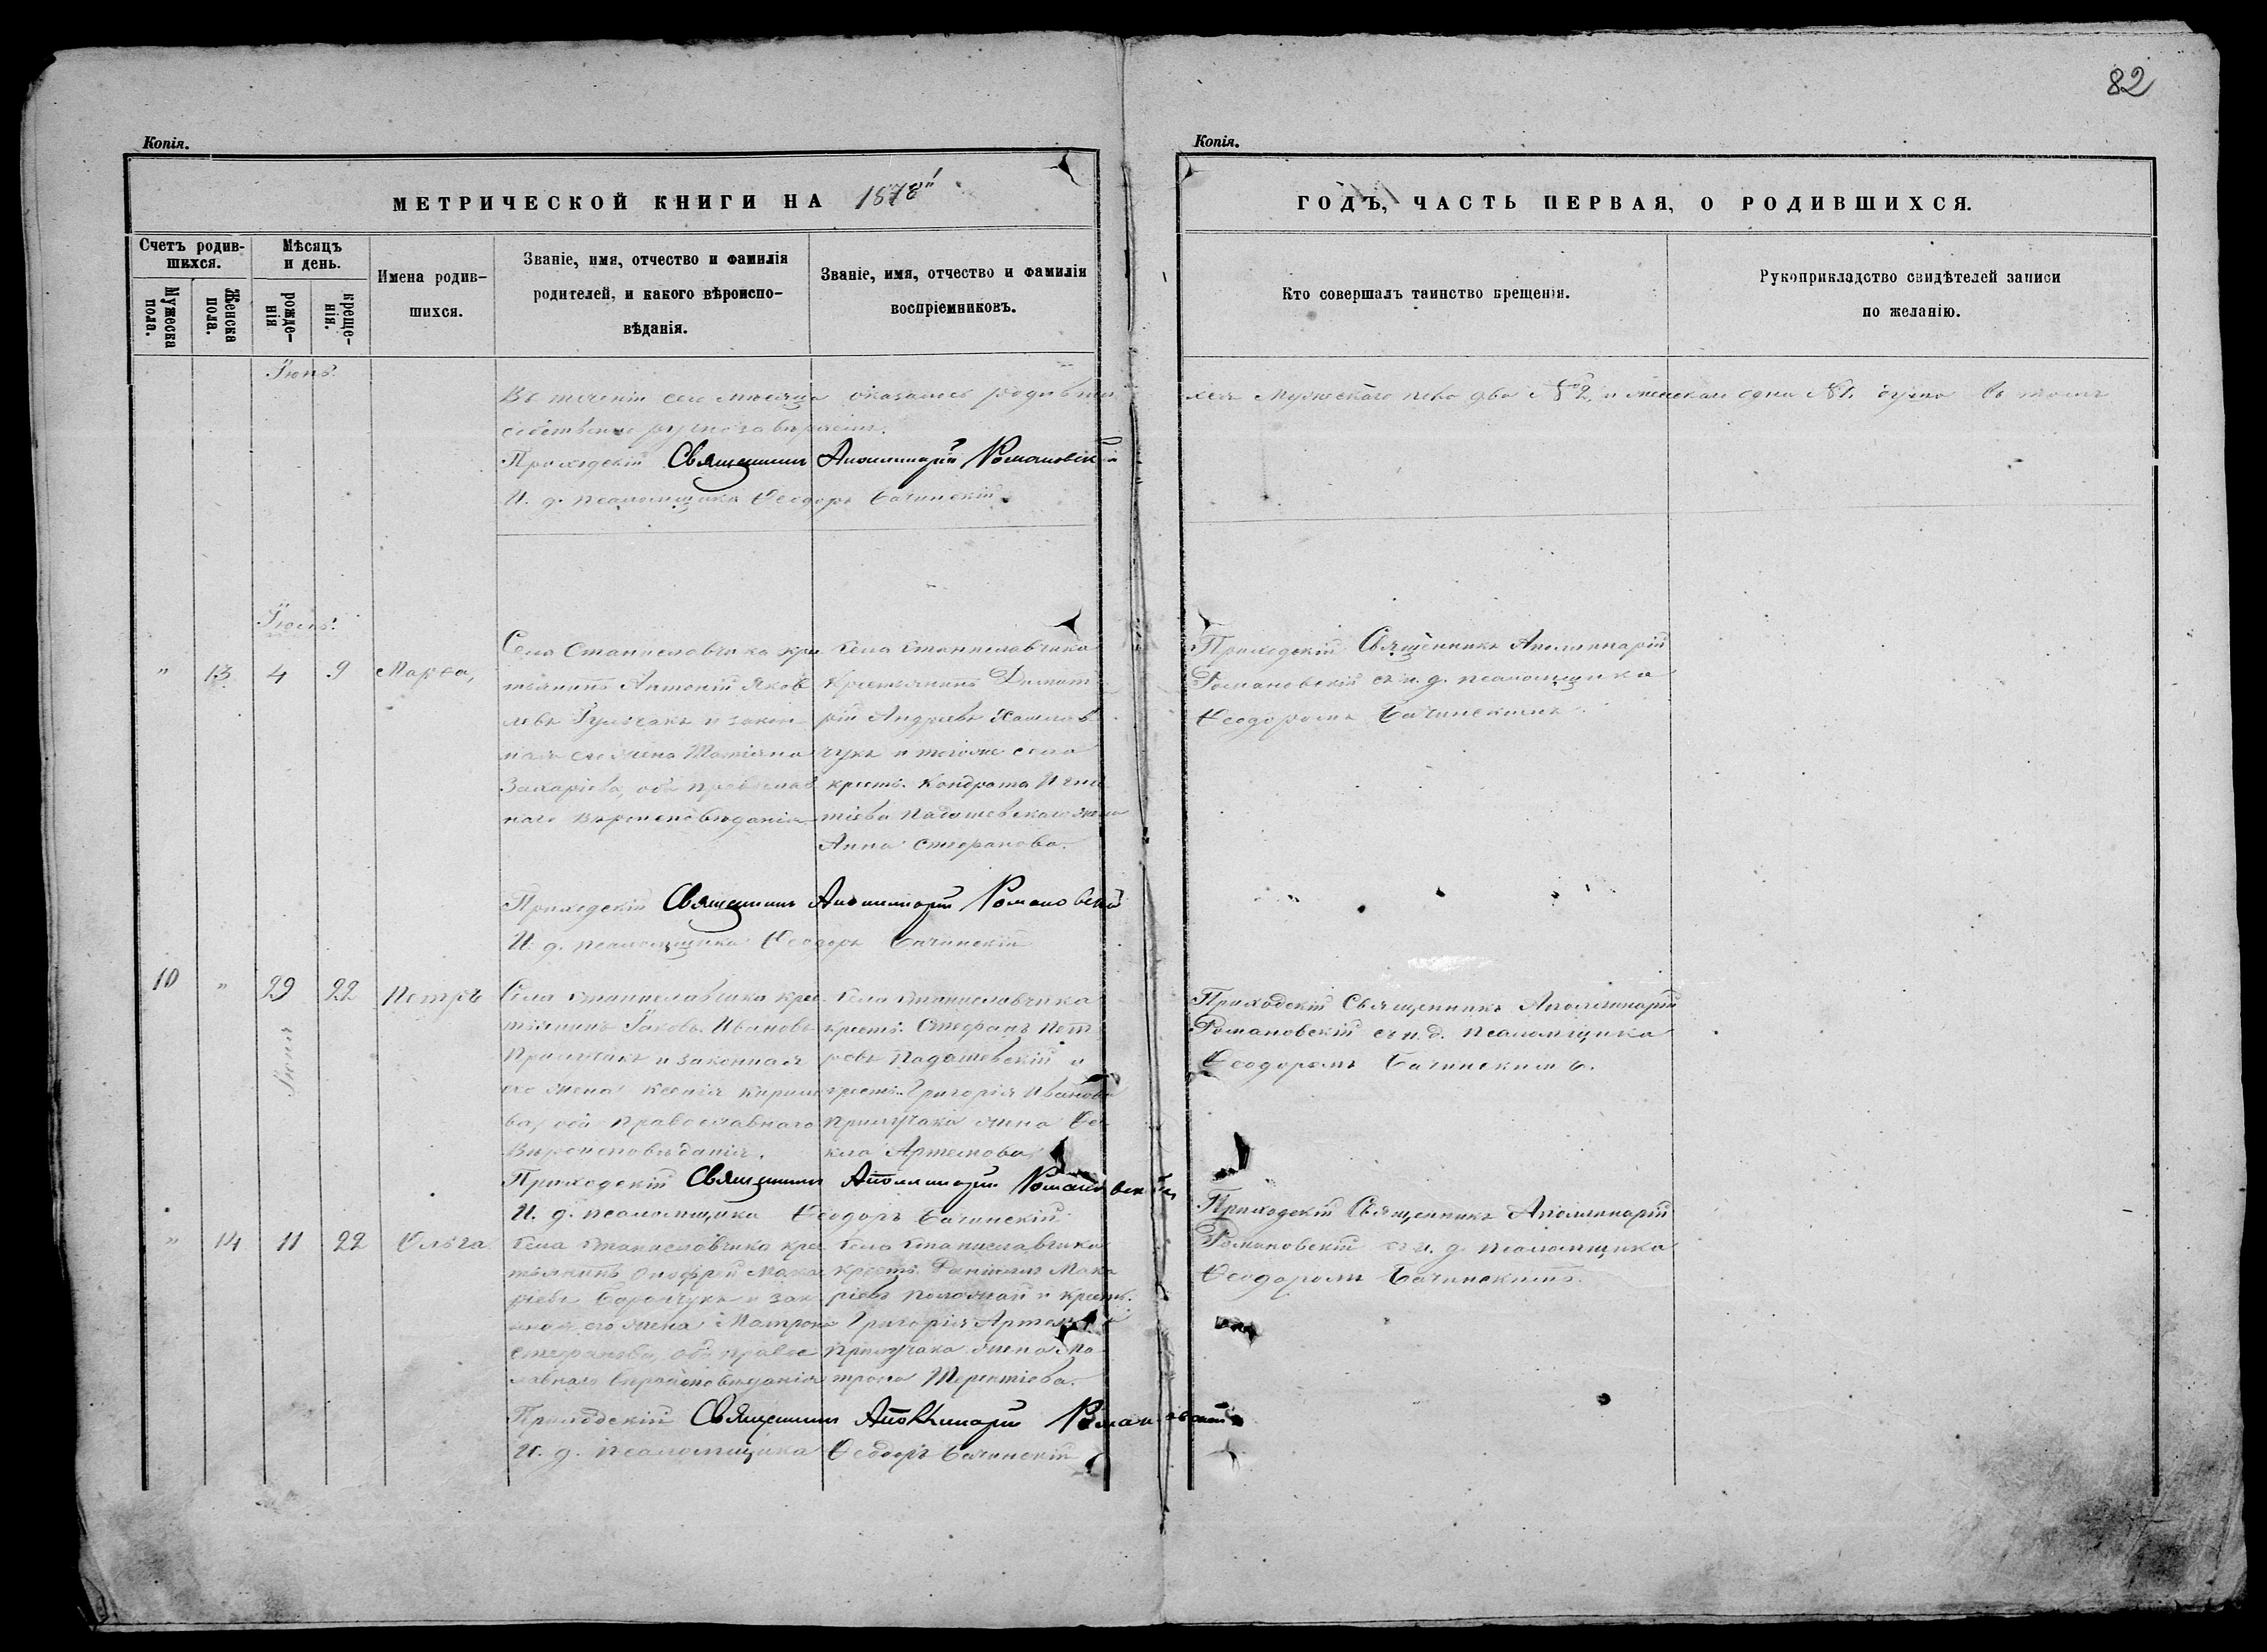 82
Копія.
МЕТРИЧЕСКОЙ КНИГИ НА 1878
Счетъ родив-
шихся.
Мужеска
пола.
Женска
пола.
Мѣсяцъ
и день.
рожде-
нія
креще-
нія.
Имена родив-
шихся.
Званіе, имя, отчество и фамилія
родителей, и какого вѣроиспо-
вѣданія.
Званіе, имя, отчество и фамилія
воспріемниковъ.
Копія.
ГОДЪ, ЧАСТЬ ПЕРВАЯ, О РОДИВШИХСЯ.
Кто совершалъ таинство крещенія.
Рукоприкладство свидѣтелей записи
по желанію.
Въ теченіи сего мѣсяца оказалось родивши
хся мужескаго пола два №2, и женскаго одна №1, въ томъ
Приходскій Священникъ Аполлинарій Романовскій
И. д. псаломщика Ѳеодоръ Бачинскій
Іюль.
" 13 4 9 Марѳа,
Села Станиславчика кре
тьянинъ Антоній Яков
левъ и закон
ная его жена Татіана
Захаріева, оба православ
наго вѣроисповѣданія
Села Станиславчика
Крестьянинъ Димит
рій Андреевъ
чукъ и тогоже села
крест. Кондрата Игна
тіева Падошевскаго жена
Анна Стефанова.
Приходскій Священникъ Аполлинарій
Романовскій съ и. д. псаломщика
Ѳеодоромъ Бачинскимъ.
Приходскій Священникъ Аполлинарій Романовскій
И. д. псаломщика Ѳеодоръ Бачинскій
10 " 29 22 Петръ
Іюня
Села Станиславчика крес
тьянинъ Іаковъ Ивановъ
и законная
его жена Ксенія Кирило
ва, оба православнаго
Вѣроисповѣданія.
Села Станиславчика
крест. Стефанъ Пет
ровъ Падошевскій и
крест. Григорія Иванова
жена Ѳе
кла Артемова
Приходскій Священникъ Аполлинарій
Романовскій съ и. д. псаломщика
Ѳеодоромъ Бачинскимъ.
Приходскій Священникъ Аполлинарій Романовскій
И. д. псаломщика Ѳеодоръ Бачинскій
" 14 11 22 Ольга
Села Станиславчика крес
тьянинъ Онофрей Мака
ріевъ и зак
его жена Матрона
Стефанова, оба правос
лавнаго вѣроисповѣданія
Села Станиславчика
крест. Даніилъ Мака
ріевъ и крест.
Григорія
жена Ма
трона Терентіева.
Приходскій Священникъ Аполлинарій
Романовскій съ и. д. псаломщика
Ѳеодоромъ Бачинскимъ.
Приходскій Священникъ Аполлинарій Романовскій
И. д. псаломщика Ѳеодоръ Бачинскій